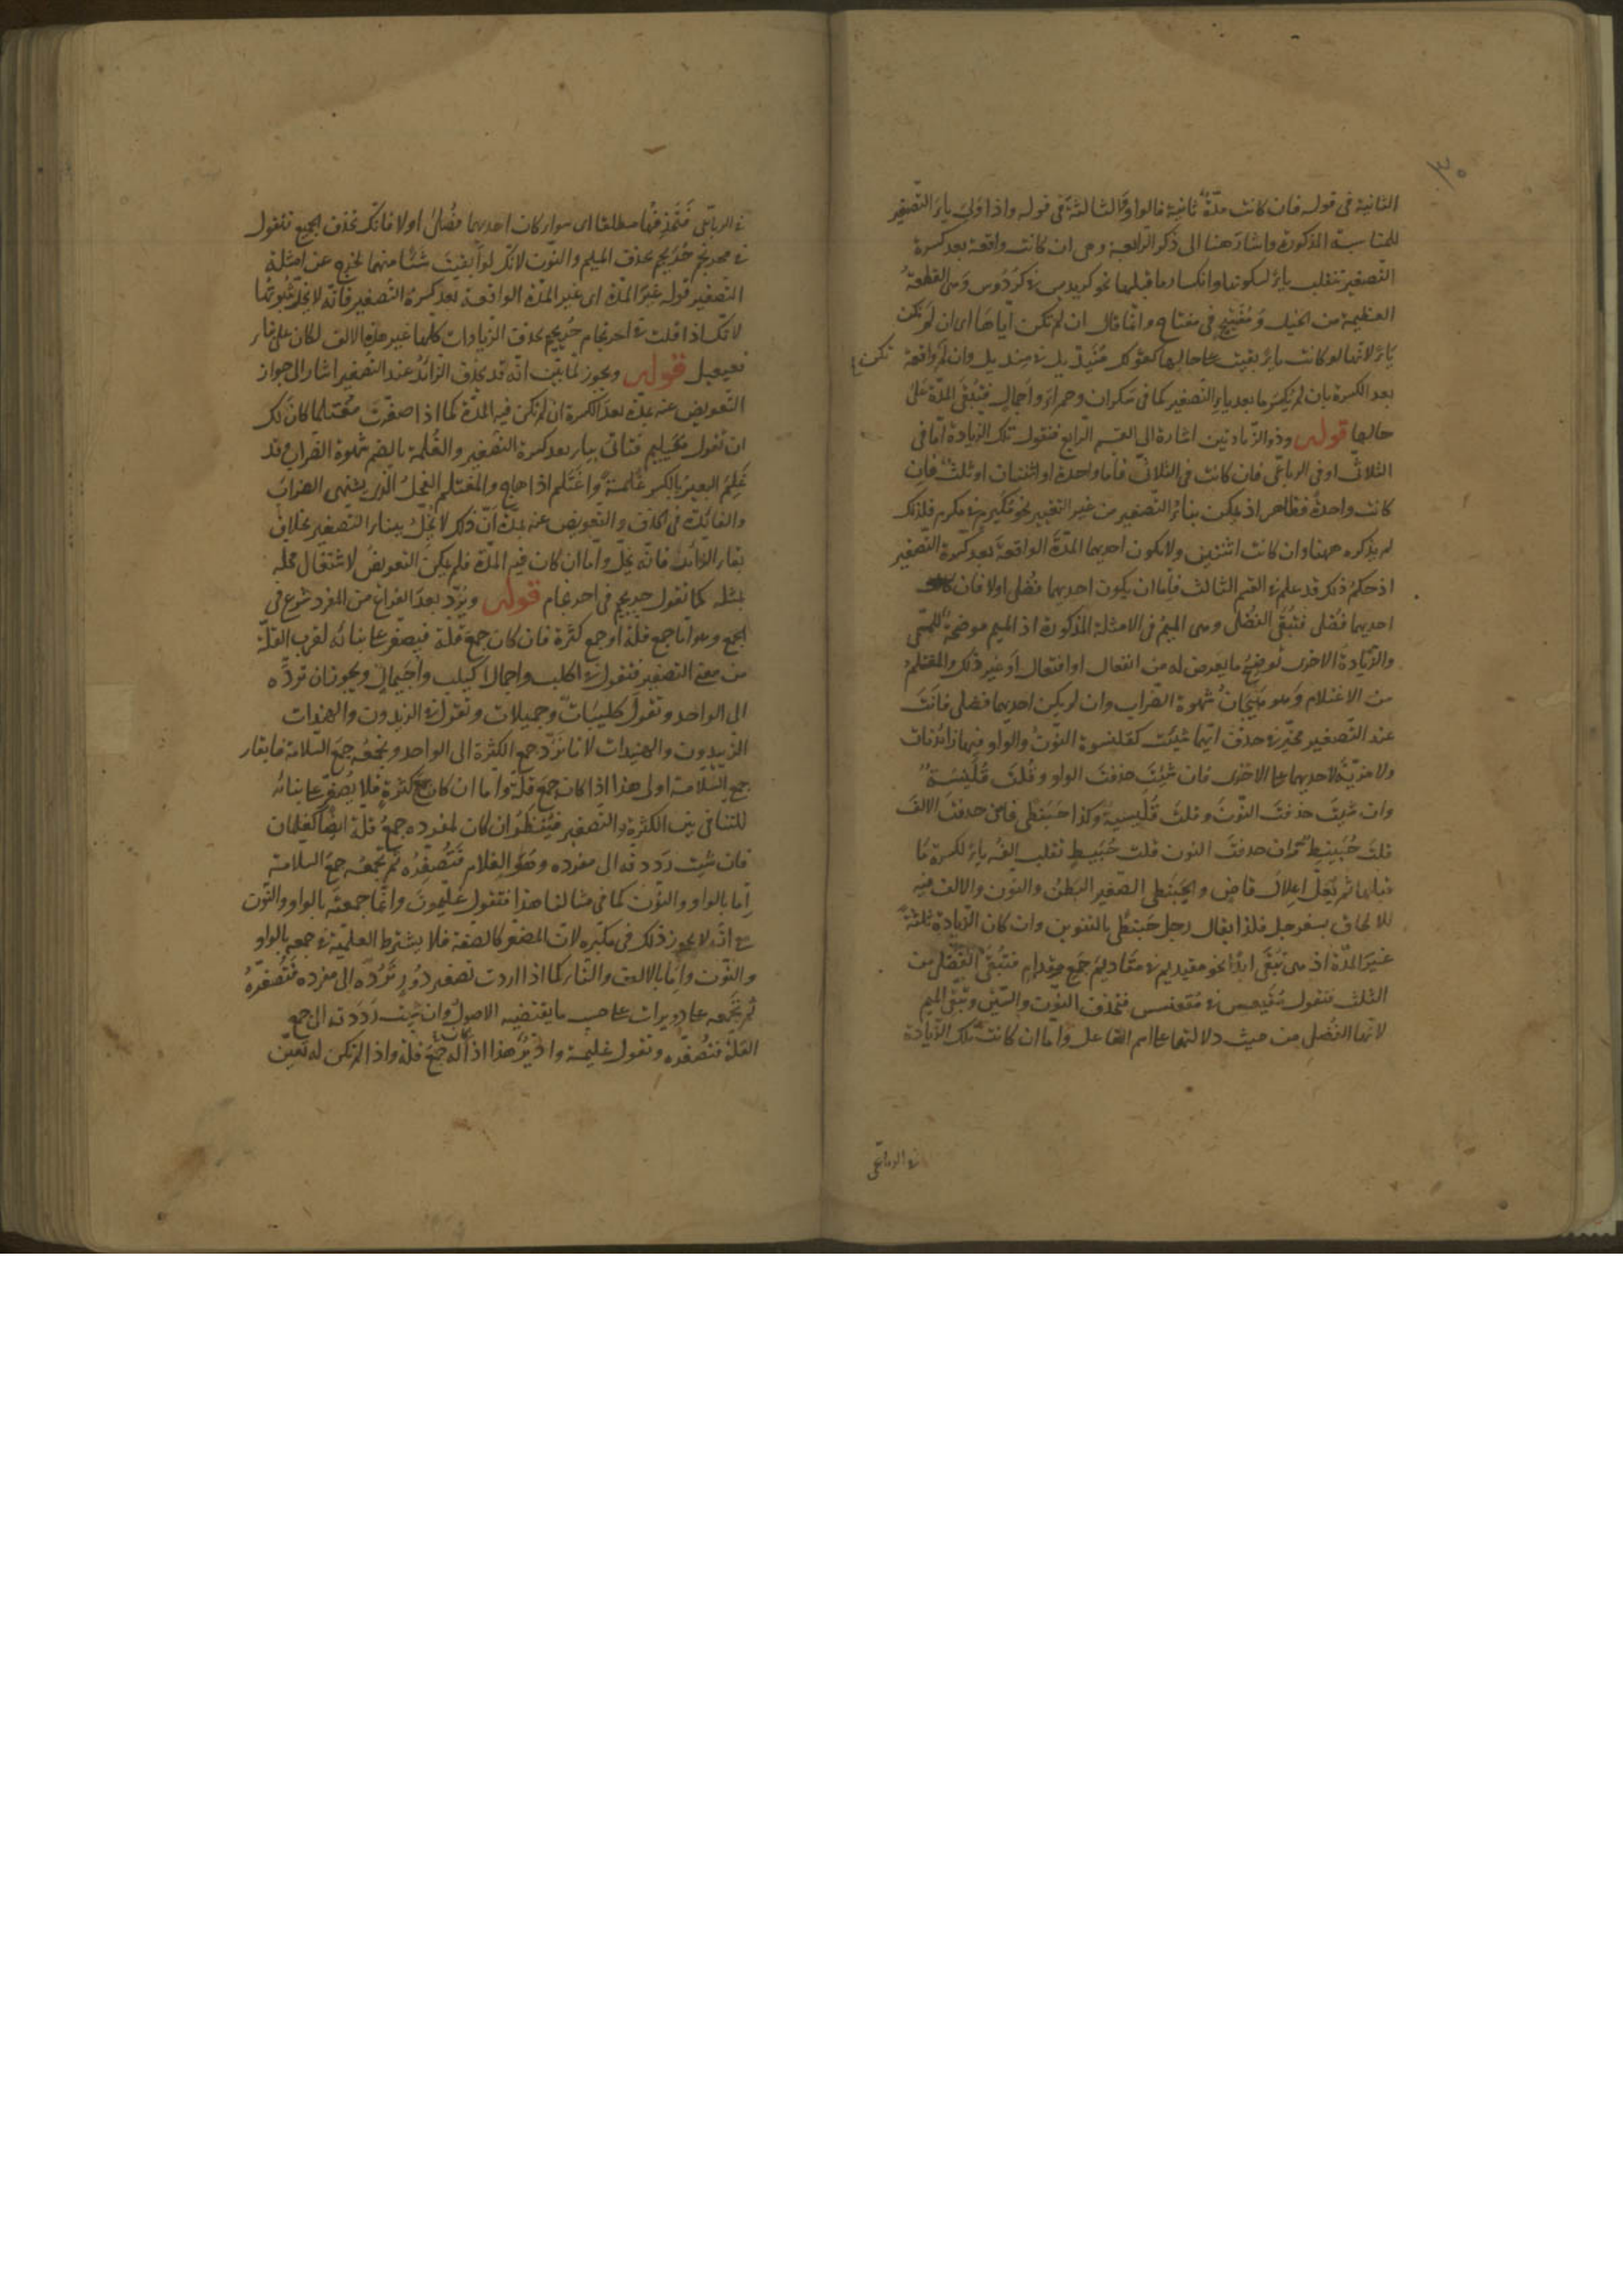 الثانية فى قوله فان كانت مدّة ثانية فالواو والثالثة فى قوله واذا ولى ياء التصغير
للمناسبة المذكورة واشار هنا الى ذكر الرابعة وهى ان كانت واقعة بعد كسرة
التصغير تنقلب ياء لسكونها وانكسار ما قبلها نحو كريديس فى كردوس وهى القطعة
العظيمة من الخيل ومفيتيح فى مفتاح وانما قال ان لم تكن اياها اى ان لم تكن
ياء لانها لو كانت ياء بقيت على حالها كقولك منيديل فى منديل وان لم واقعة
تكن
بعد الكسرة بان لم يكسر ما بعد ياء التصغير كما فى سكران وحمراء واجمال فتبقى المدة على
حالها قوله وذو الزيادتين اشارة الى القسم الرابع فنقول تلك الزيادة اما فى
الثلاثى او فى الرباعى فان كانت فى الثلاثى فاما واحدة او اثنتان او ثلث فان
كانت واحدة فظاهر اذ يمكن بناء التصغير من غير التغيير نحو مكيرم فى مكرم فلذلك
لم يذكره ههنا وان كانت اثنتين ولا يكون احديهما المدة الواقعة بعد كسرة التصغير
اذ حكم ذلك قد علم فى القسم الثالث فاما ان يكون احديهما فضلى اولا فان كانت
احديهما فضلى فتبقى الفضلى وهى الميم فى الامثلة المذكورة اذ الميم موضحة للمسمى
والزيادة الاخرى توضح ما يعرض له من انفعال او افتعال او غير ذلك والمغتلم
من الاغتلام وهو هيجان شهوة الضراب وان لم يكن احديهما فضلى فانت
عند التصغير مخير فى حذف ايهما شئت كقلنسوة النون والواو فيها زائدتان
ولا مزية لاحديهما على الاخرى فان شئت حذفت الواو وقلت قلينسة
وان شئت حذفت النون وقلت قليسية وكذا حبنطى فان حذفت الالف
قلت حبينط وان حذفت النون قلت حبيط تقلب الفه ياء لكسرة ما
قبلها ثم يعل اعلال قاض والحبنطى الصغير البطن والنون والالف فيه
للالحاق بسفرجل فلذا يقال رجل حبنطى بالتنوين وان كان الزيادة ثلثة
غير المدة اذ هى تبقى ابدا نحو مقيديم فى مقاديم جمع مقدام فتبقى الفضلى من
الثلث فتقول مقيعس فى مقعنسس فتحذف النون والسين وتبقى الميم
لانها الفضلى من حيث دلالتها على اسم الفاعل واما ان كانت تلك الزيادة
فى الرباعى
فى الرباعى فتحذفها مطلقا اى سواء كان احديهما فضلى اولا فانك تحذف الجميع فتقول
فى محرنجم حريجم بحذف الميم والنون لانك لو ابقيت شئا منهما لخرج عن امثلة
التصغير قوله غير المدة اى غير المدة الواقعة بعد كسرة التصغير فانه لا يخل ثبوتها
لانك اذا قلت فى احرنجام حريجيم بحذف الزيادات كلها غير هذه الالف لكان على بناء
فعيعيل قوله ويجوز لما بين انه قد يحذف الزائد عند التصغير اشار الى جواز
التعويض عنه بمدة بعد الكسرة ان لم تكن فيه المدة كما اذا صغرت مغتلما كان لك
ان تقول مغيليم فتاتى بياء بعد كسرة التصغير والغلمة بالضم شهوة الضراب وقد
غلم البعير بالكسر غلمة واغتلم اذا هاج والمغتلم الفحل الذى يشتهى الضراب
والفائدة فى الحذف والتعويض عنه بمدة ان ذلك لا يخل ببناء التصغير بخلاف
بقاء الزائد فانه يخل واما ان كان فيه المدة فلم يمكن التعويض لاشتغال محله
بمثله كما تقول حريجيم فى احرنجام قوله ويرد بعد الفراغ من المفرد شرع فى
الجمع وهو اما جمع قلة او جمع كثرة فان كان جمع قلة فيصغر على بنائه لقرب القلة
من معنى التصغير فتقول فى اكلب واجمال اكيلب واجيمال ويجوز ان ترده
الى الواحد وتقول كليبات وجميلات وتقول فى الزيدون والهندات
الزييدون والهنيدات لانا نرد جمع الكثرة الى الواحد ونجمعه جمع السلامة فابقاء
جمع السلامة اولى هذا اذا كان جمع قلة واما ان كان جمع كثرة فلا يصغر على بنائه
للتنافى بين الكثرة والتصغير فينظر ان كان لمفرده جمع قلة ايضا كغلمان
فان شئت رددته الى مفرده وهو الغلام فتصغره ثم تجمعه جمع السلامة
اما بالواو والنون كما فى مثالنا هذا فتقول غليمون وانما جمعته بالواو والنون
مع انه لا يجوز ذلك فى مكبره لان المصغر كالصفة فلا يشترط العلمية فى جمعه بالواو
والنون واما بالالف والتاء كما اذا اردت تصغير دور ترده الى مفرده فتصغره
ثم تجمعه على دويرات على حسب ما يقتضيه الاصول وان شئت رددته الى جمع
القلة فتصغره وتقول غليمة وادير هذا اذا كان له جمع قلة واذا لم تكن له تعين